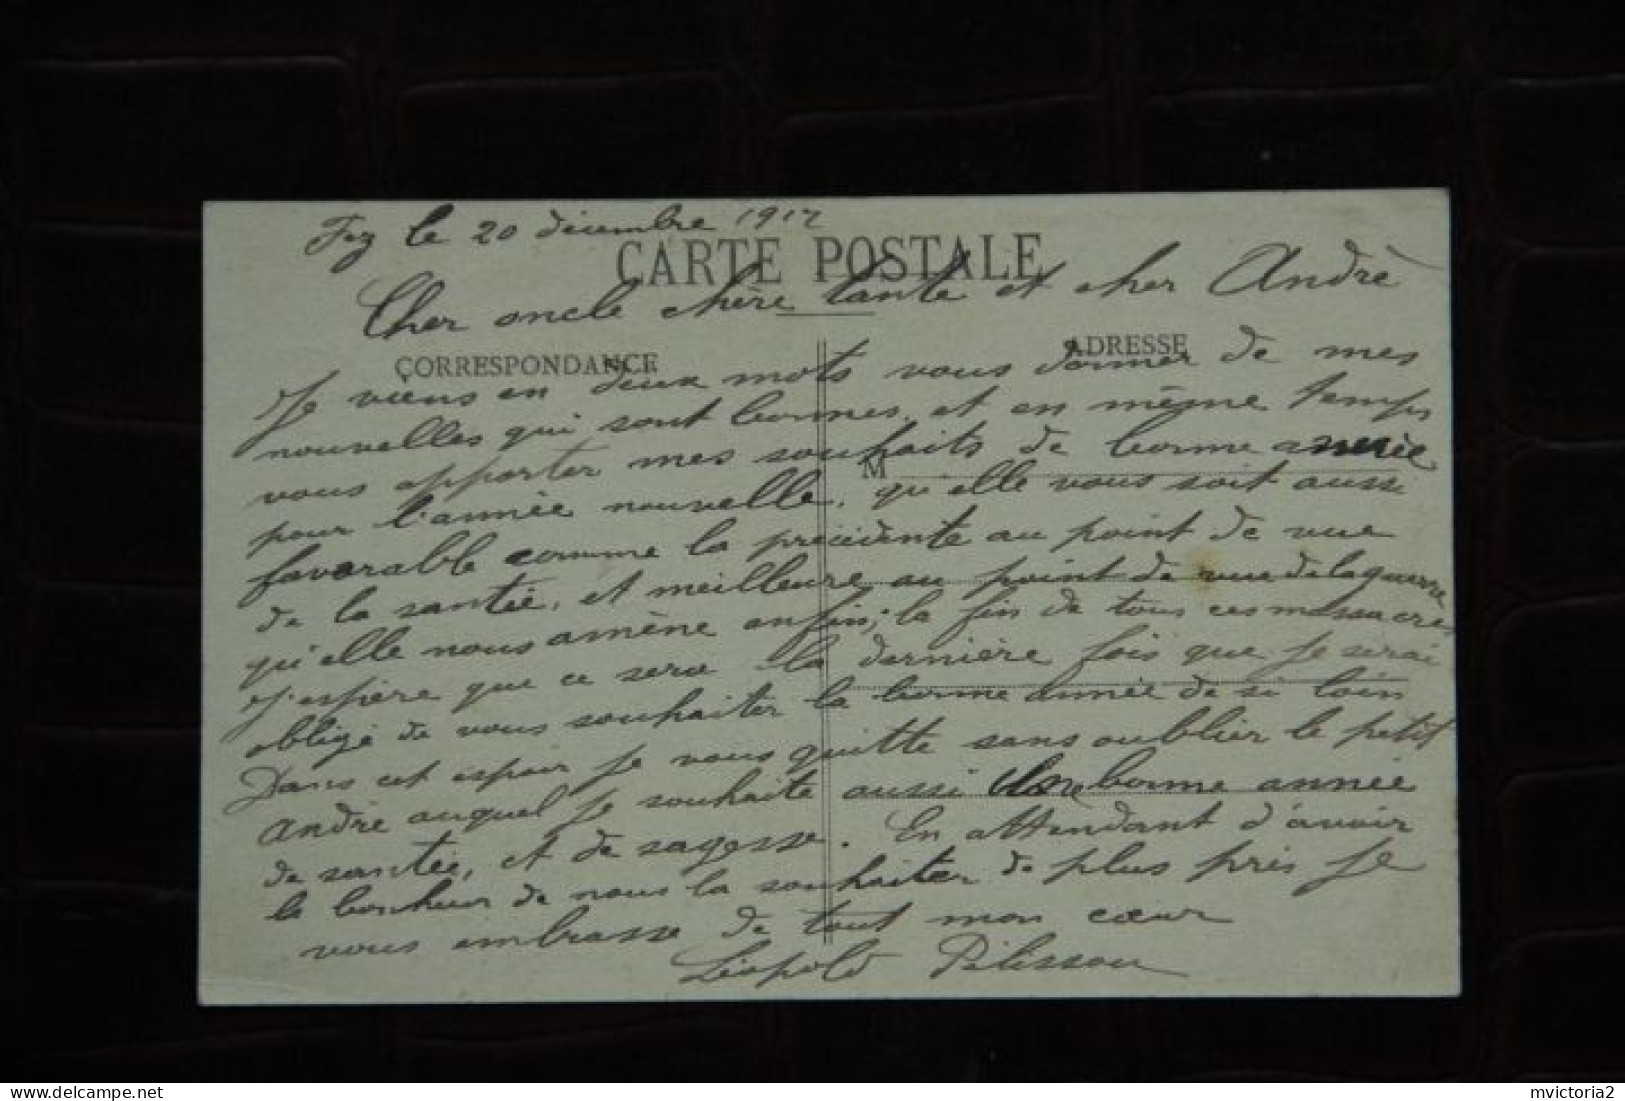 Fez le 20 décembre 1917
CARTE POSTALE
Cher oncle chère tante et cher André
CORRESPONDANCE
ADRESSE
Je viens en deux mots vous donner de mes
nouvelles qui sont bonnes, et en même temps
vous apporter mes souhaits de bonne année
M
pour l'année nouvelle, qu'elle vous soit aussi
favorable comme la précédente au point de vue
de la santée, et meilleure au point de vue de la guerre
qu'elle nous amène enfin; la fin de tous ces massacres
J'espère que ce sera la dernière fois que je serai
obligé de vous souhaiter la bonne année de si loin
Dans cet espoir je vous quitte sans oublier le petit
André auquel je souhaite aussi une bonne année
de santée, et de sagesse. En attendant d'avoir
le bonheur de nous la souhaiter de plus près je
vous embrasse de tout mon cœur
Léopold Pélissou
mvictoria2